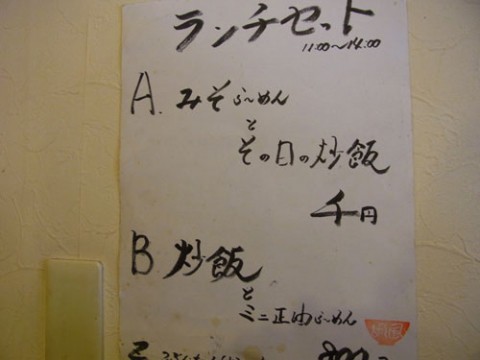 ランチセット
11:00〜14:00
A. みそらーめん
と
その日の炒飯
千円
B 炒飯
と
ミニ正油らーめん